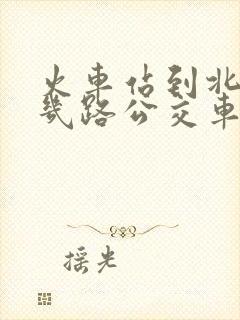 火車佔到北
幾路公交車
摇光